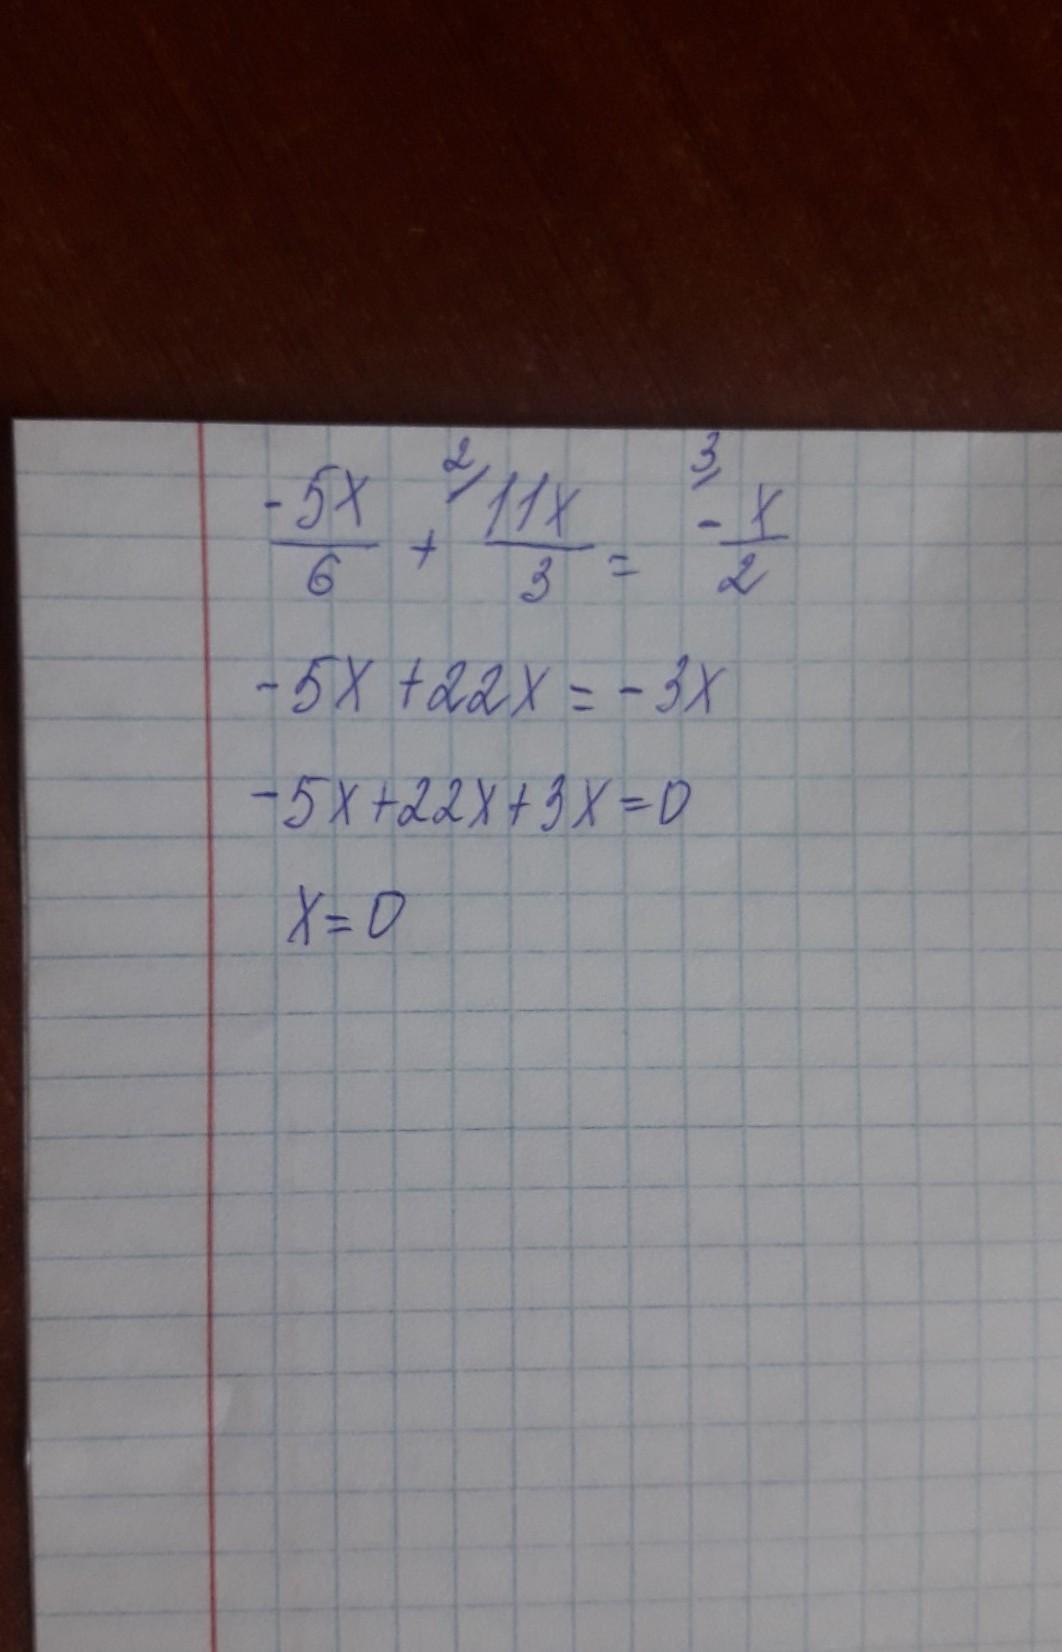 -5x/6 + 2/ 11x/3 = 3/ -x/2
-5x+22x=-3x
-5x+22x+3x=0
x=0